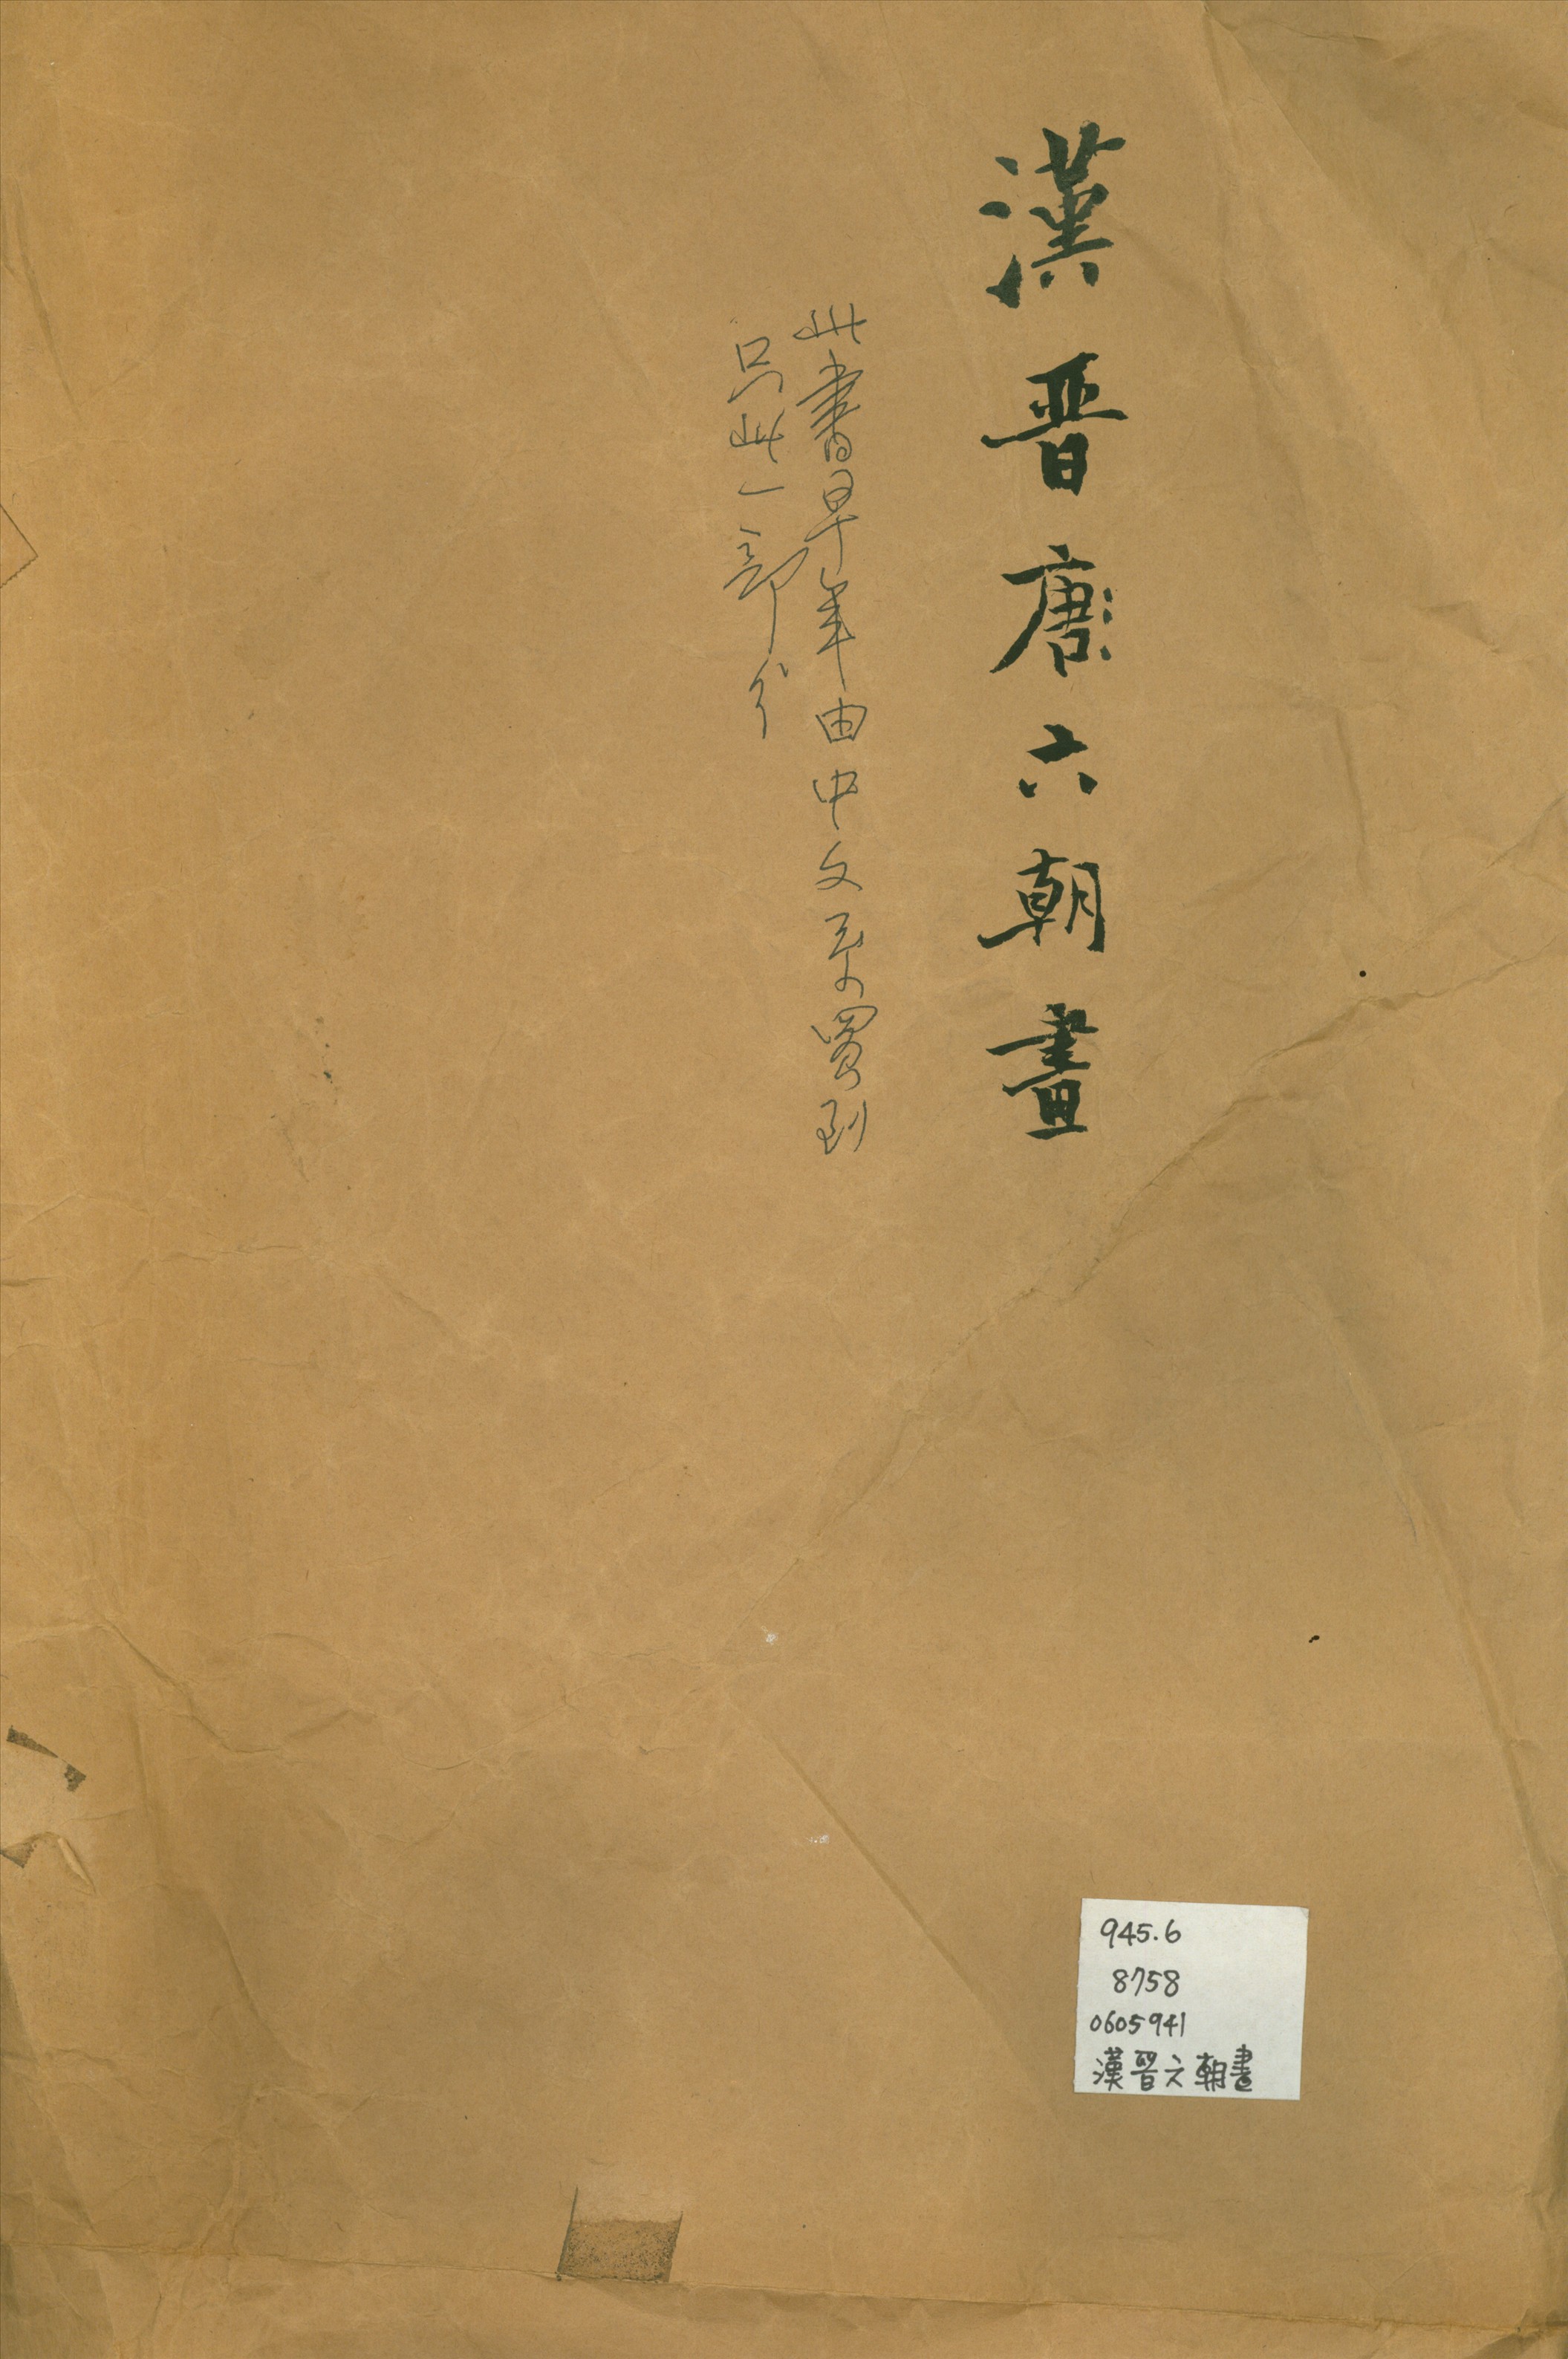 漢晋唐六朝畫
此書早年由中文系買到
只此一部分
945.6
8758
0605941
漢晉六朝畫